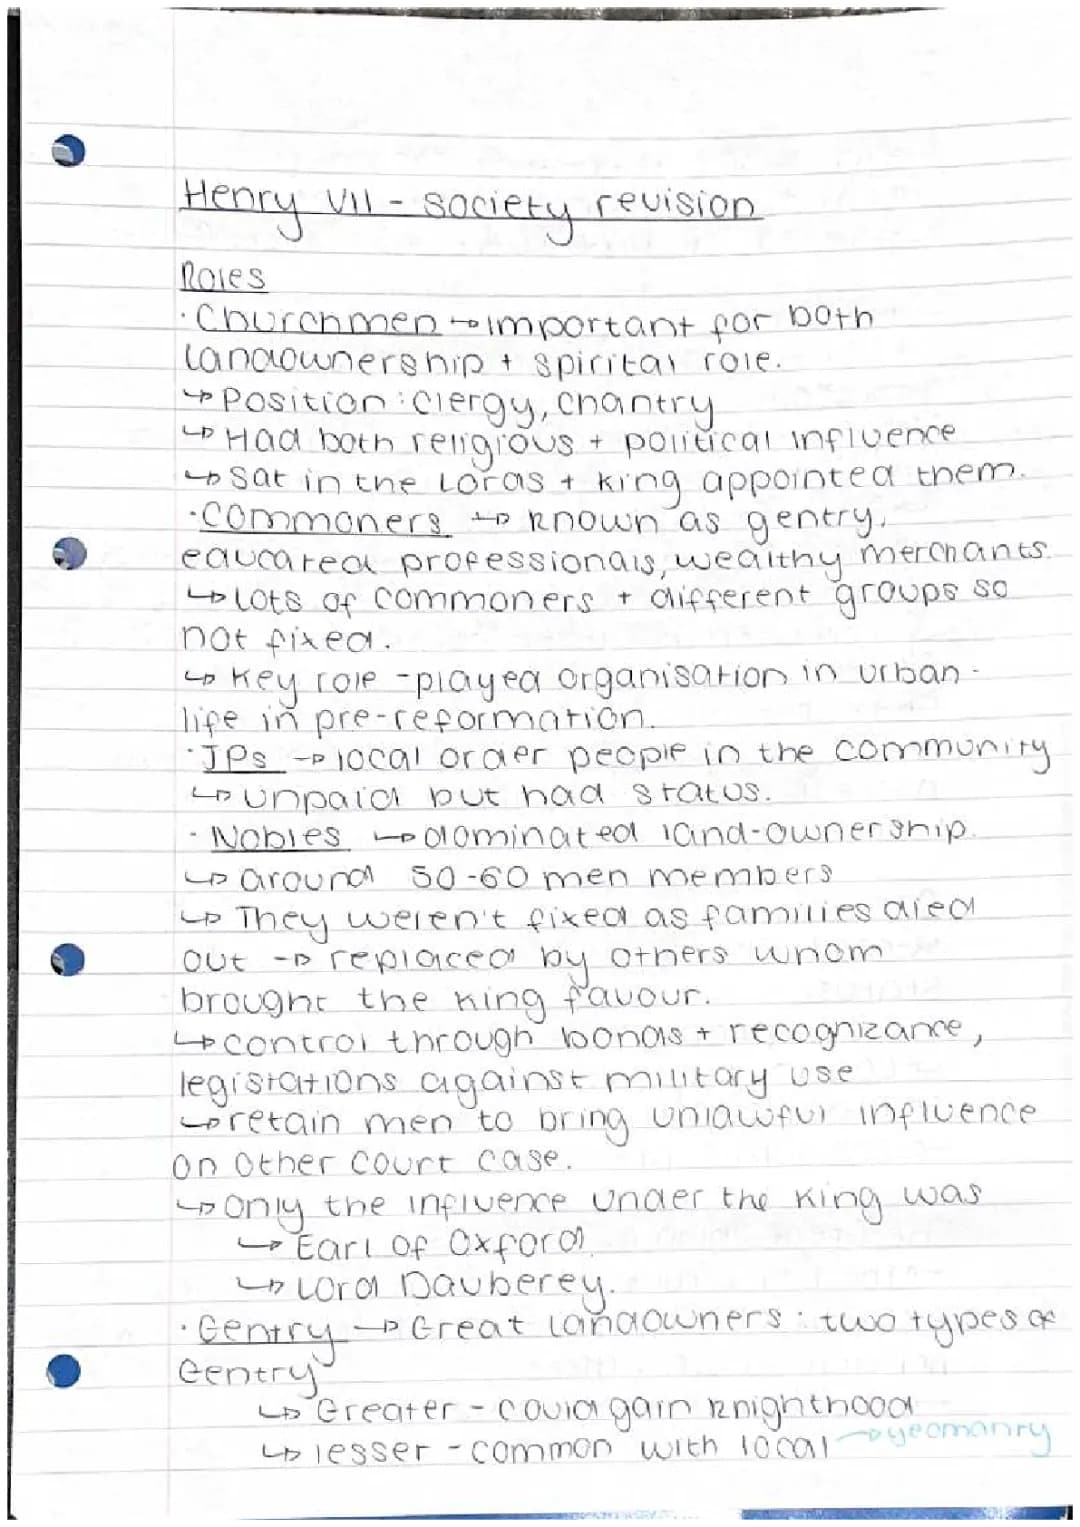 Henry VII - society revision
Roles
· Churchmen → important for both
landownership + spirital role.
↳ Position : clergy, chantry
↳ Had both religious + political influence
↳ sat in the Lords + king appointed them.
· Commoners → known as gentry,
educated professionals, wealthy merchants.
↳ lots of commoners + different groups so
not fixed.
↳ Key role - played organisation in urban -
life in pre-reformation.
· JPs → local order people in the community
↳ unpaid but had status.
· Nobles → dominated land-ownership.
↳ around 50-60 men members
↳ They weren't fixed as families died
out → replaced by others whom
brought the king favour.
↳ control through bonds + recognizance,
legistations against military use
↳ retain men to bring unlawful influence
on other court case.
↳ Only the influence under the king was
↳ Earl of Oxford.
↳ Lord Dauberey.
· Gentry → Great landowners : two types of
Gentry
↳ Greater - could gain knighthood
↳ lesser - common with local → yeomanry